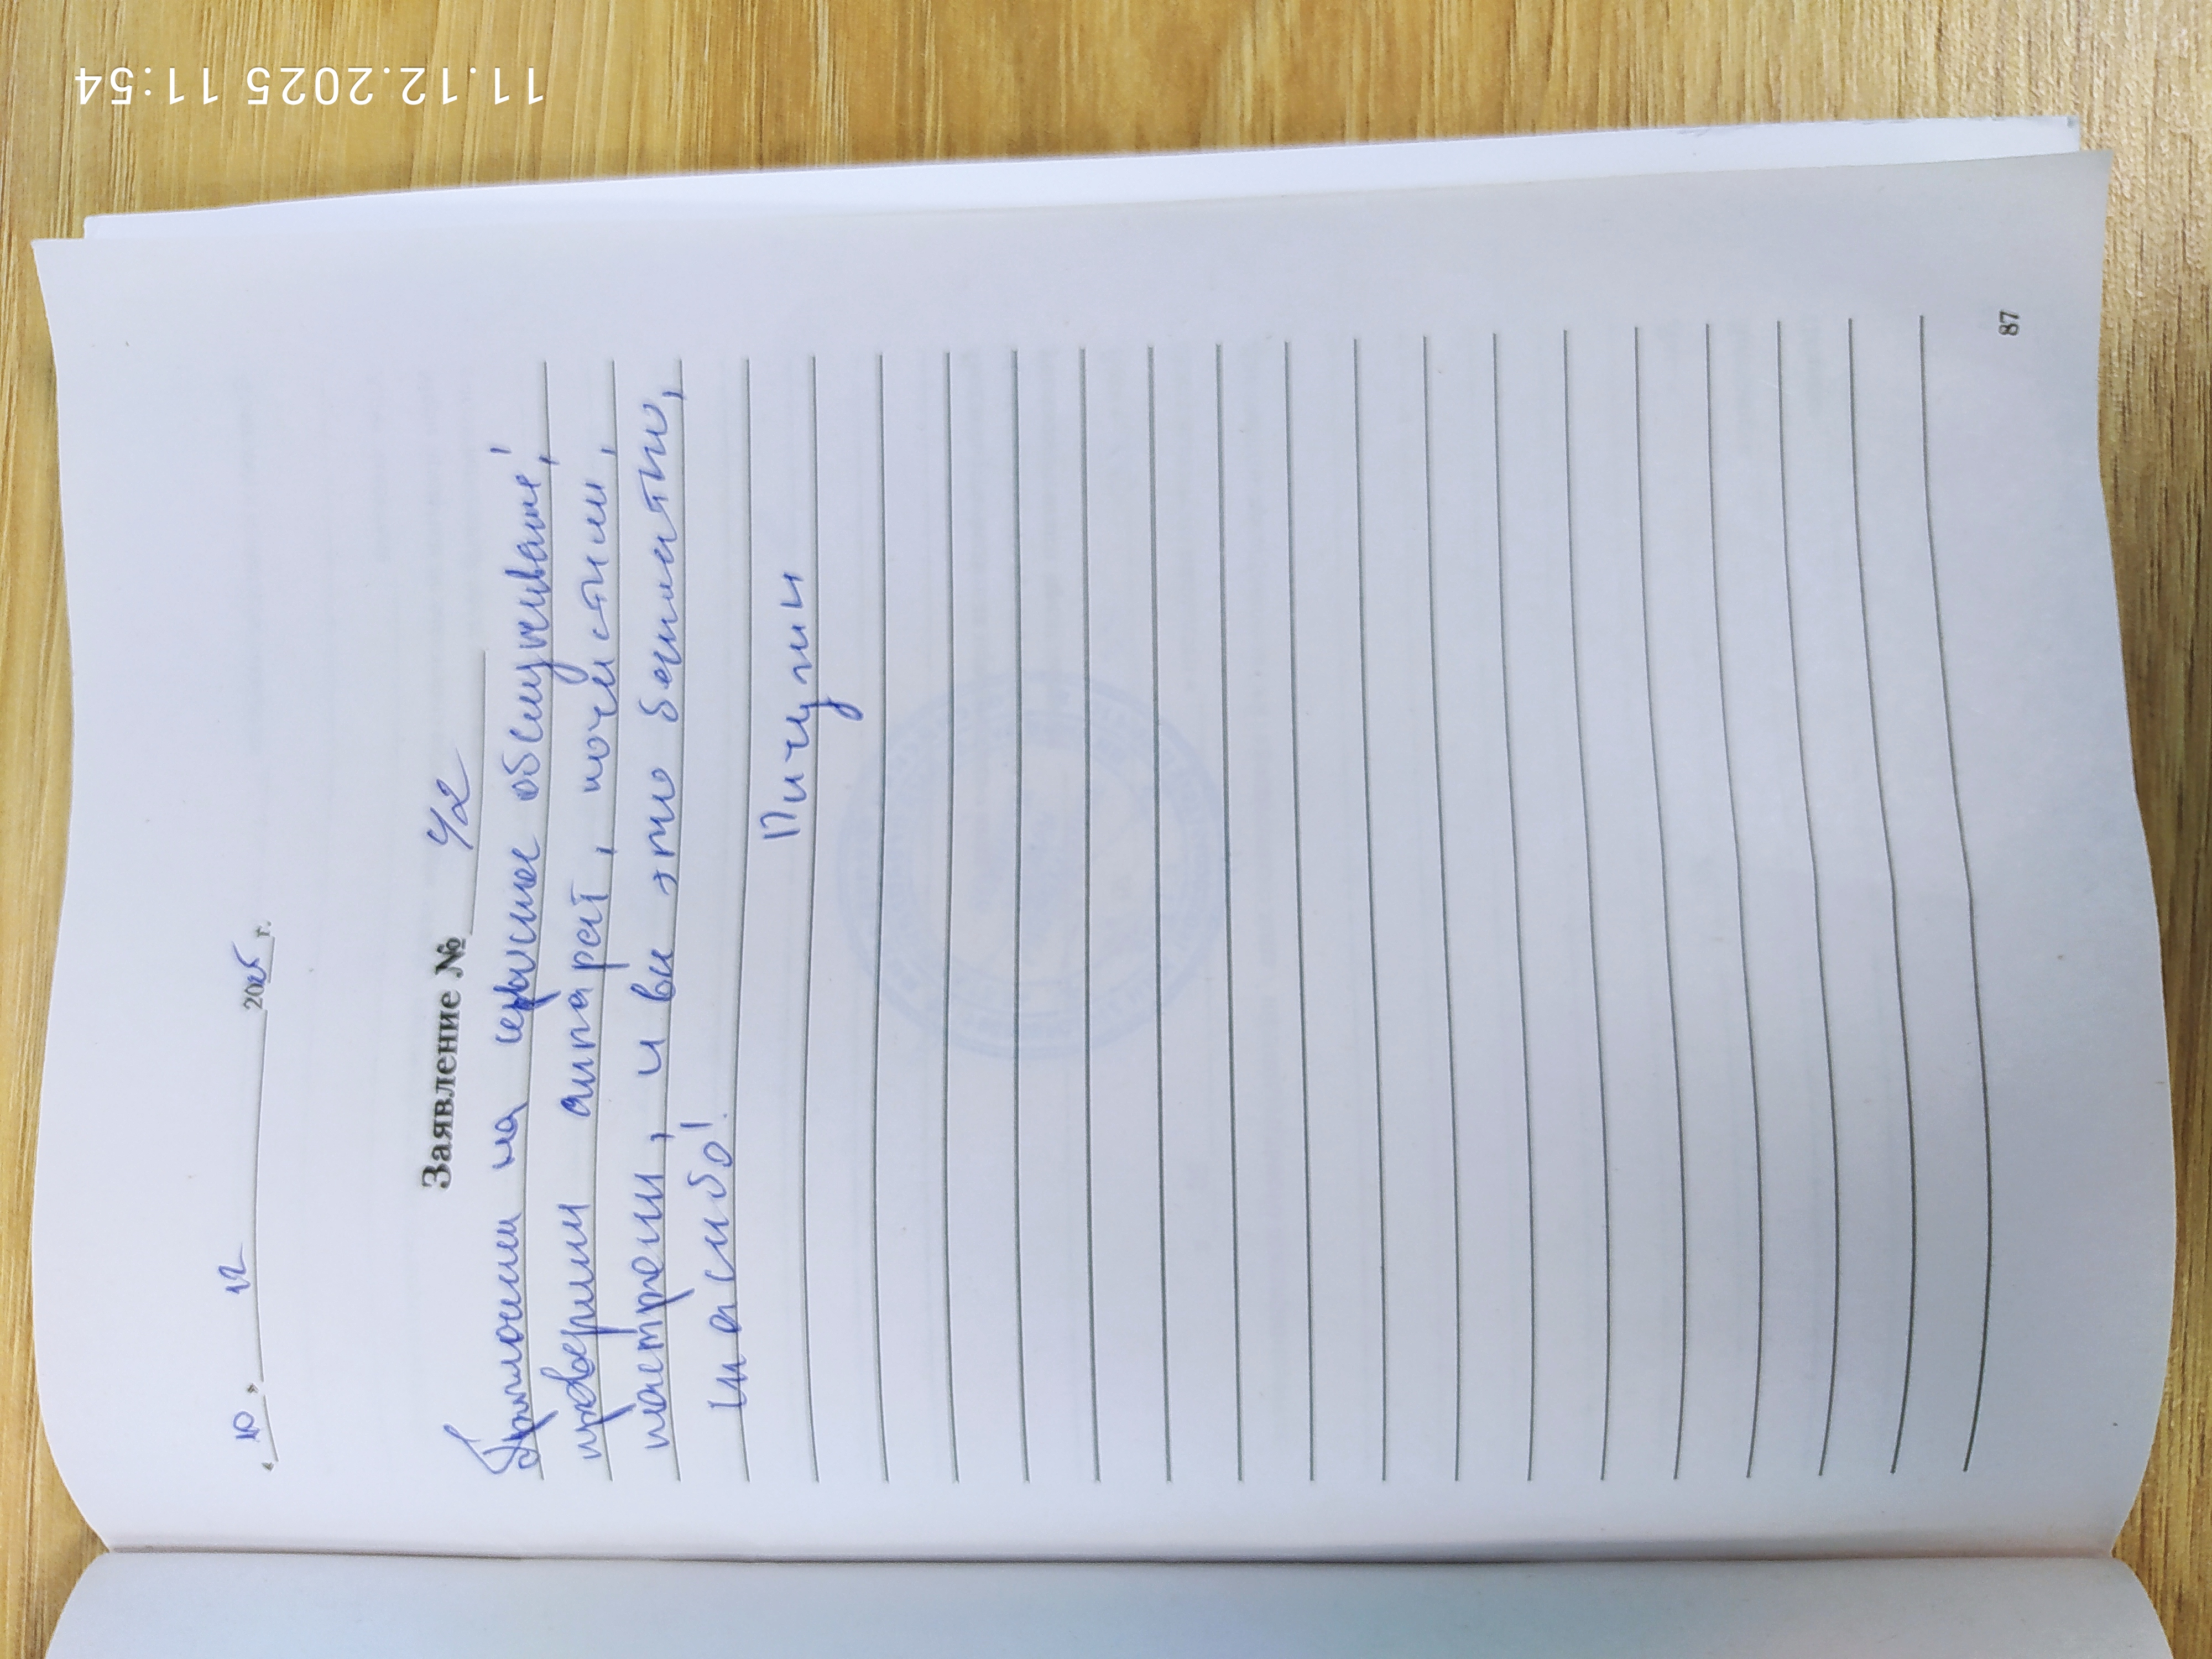 11.12.2025 11:54
« 10 » 12 2025 г.
Заявление № 42
Приносили на сервисное обслуживание,
проверили аппарат, почистили,
настроили, и вы это бесплатно,
спасибо!
Пичулин
87